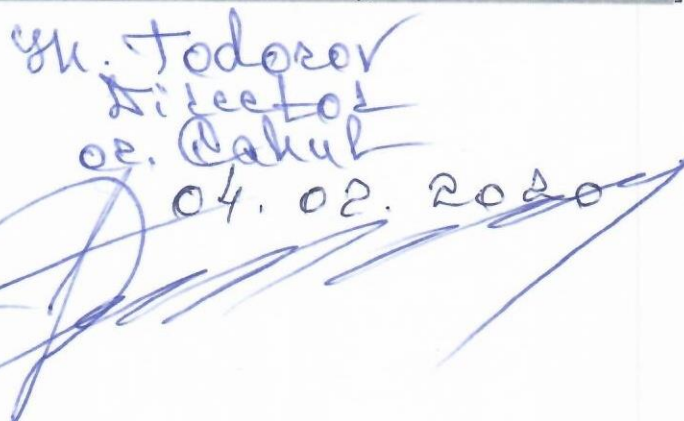 Todorov
Director
or. Cahul
04.02.2020